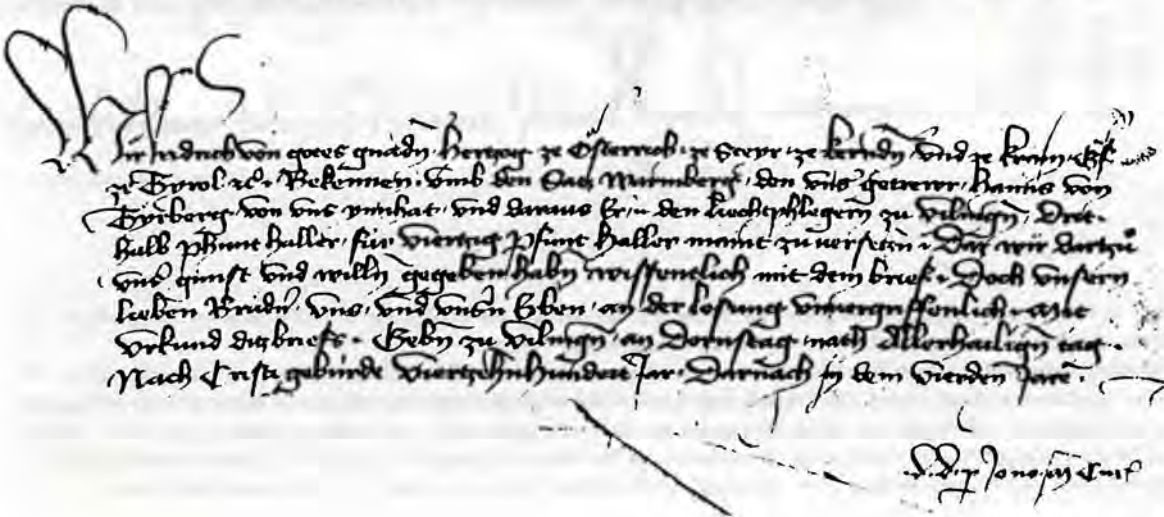 Wir Fridrich von gotes gnadn Herczog ze Österreich ze Steyr ze kerndn vnd ze krain Graf
ze Tyrol etc. Bekennen vmb den Sacz von den vns getrewr Hanns von
Tyrberg von vns ynnhat vnd daraus Er den liechtphlegern zu vilingn Drit
halb phunt haller für vierczig phunt haller maint zuuerseczn Daz wir darczů
vnsr gunst vnd willn gegeben habn wissentlich mit dem brief Doch vnsern
lieben Brüdrn vns vnd vnsrn Erben an der losung vnuergriffenlich Mit
vrkund dicz briefs Gebn zu vilingn an Dornstag nach Allerhailign tag
Nach Cristi gebürde vierczehnhundert Jar Darnach in dem vierden Jare
d. d. p